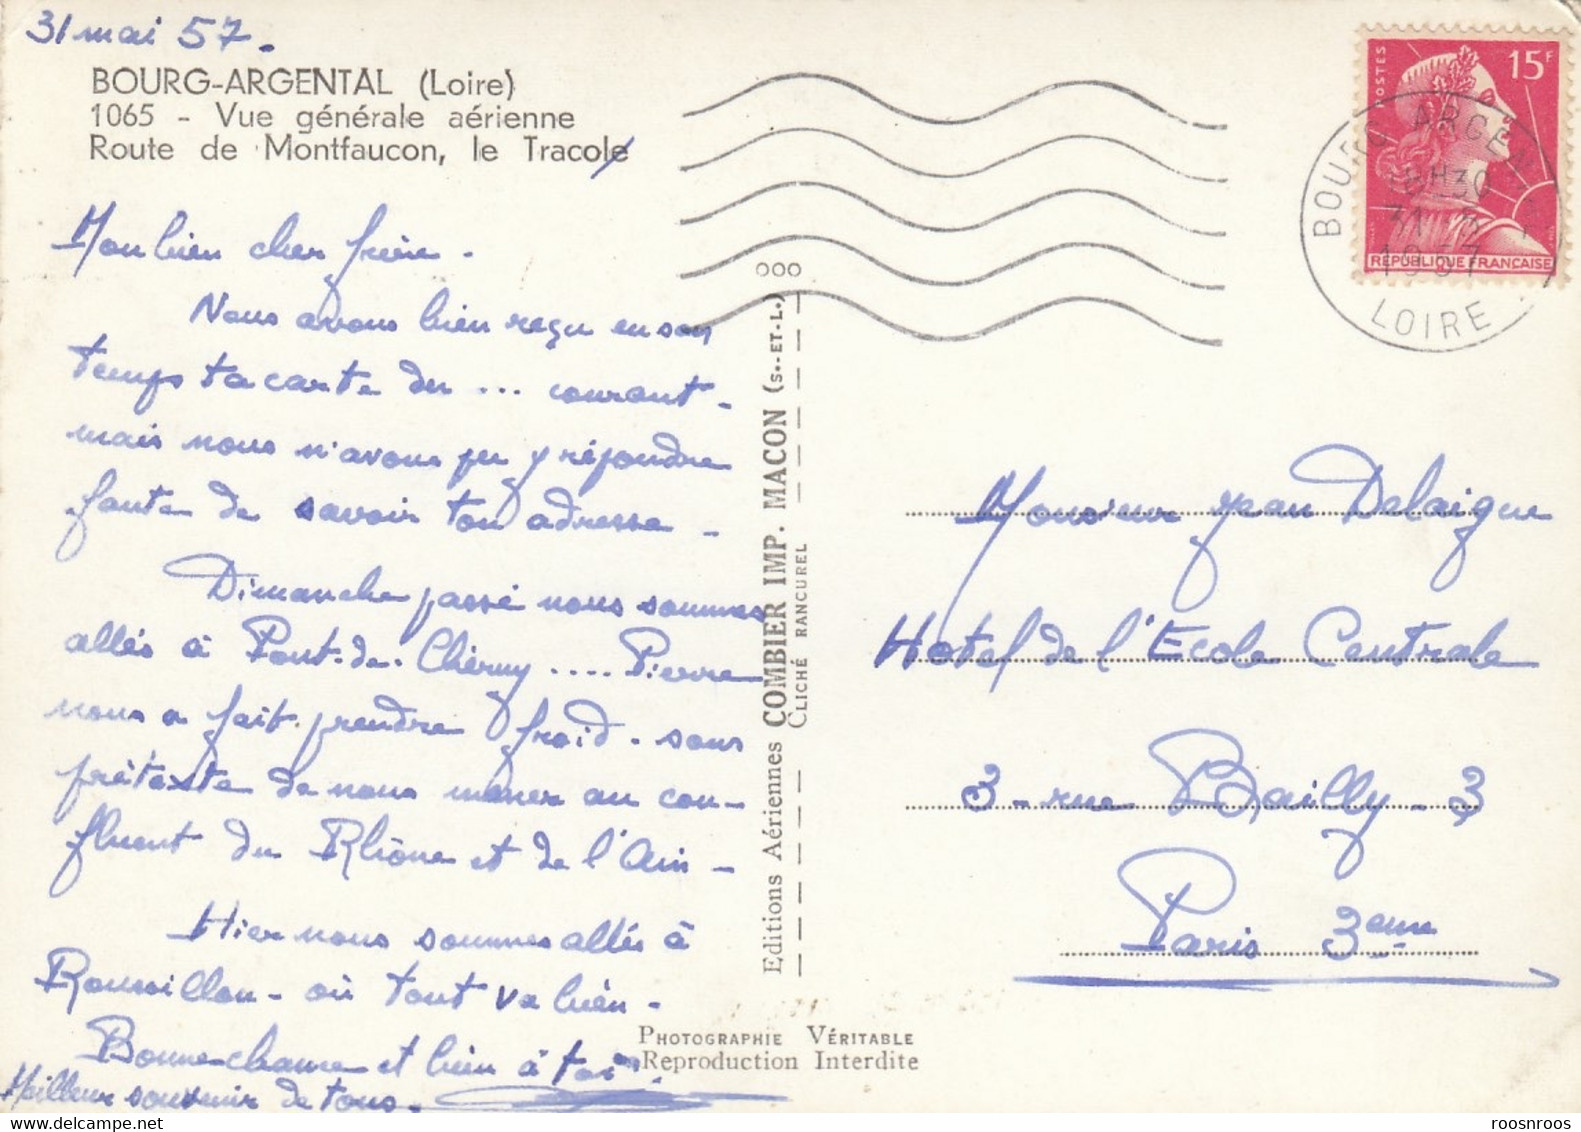 31 mai 57.
BOURG-ARGENTAL (Loire)
1065 - Vue générale aérienne
Route de Montfaucon, le Tracol
Mon bien cher frère.
Nous avons bien reçu en son
temps ta carte du ... courant -
mais nous n'avons pu y répondre
faute de savoir ton adresse -
Dimanche passé nous sommes
allés à Pont-de-Chéruy .... Pierre
nous a fait prendre froid - sous
prétexte de nous mener au con-
fluent du Rhône et de l'Ain -
Hier nous sommes allés à
Roussillon - où tout va bien -
Bonne chance et bien à toi.
Meilleur souvenir de tous.
000
Editions Aériennes COMBIER IMP. MACON (S.-ET-L.)
CLICHÉ RANCUREL
PHOTOGRAPHIE VÉRITABLE
Reproduction Interdite
POSTES
15F
RÉPUBLIQUE FRANÇAISE
BOURG ARGENTAL
18H30
31 - 5
1957
LOIRE
Monsieur Jean Delaigue
Hotel de l'Ecole Centrale
3 - rue Bailly - 3
Paris 3eme
roosnroos